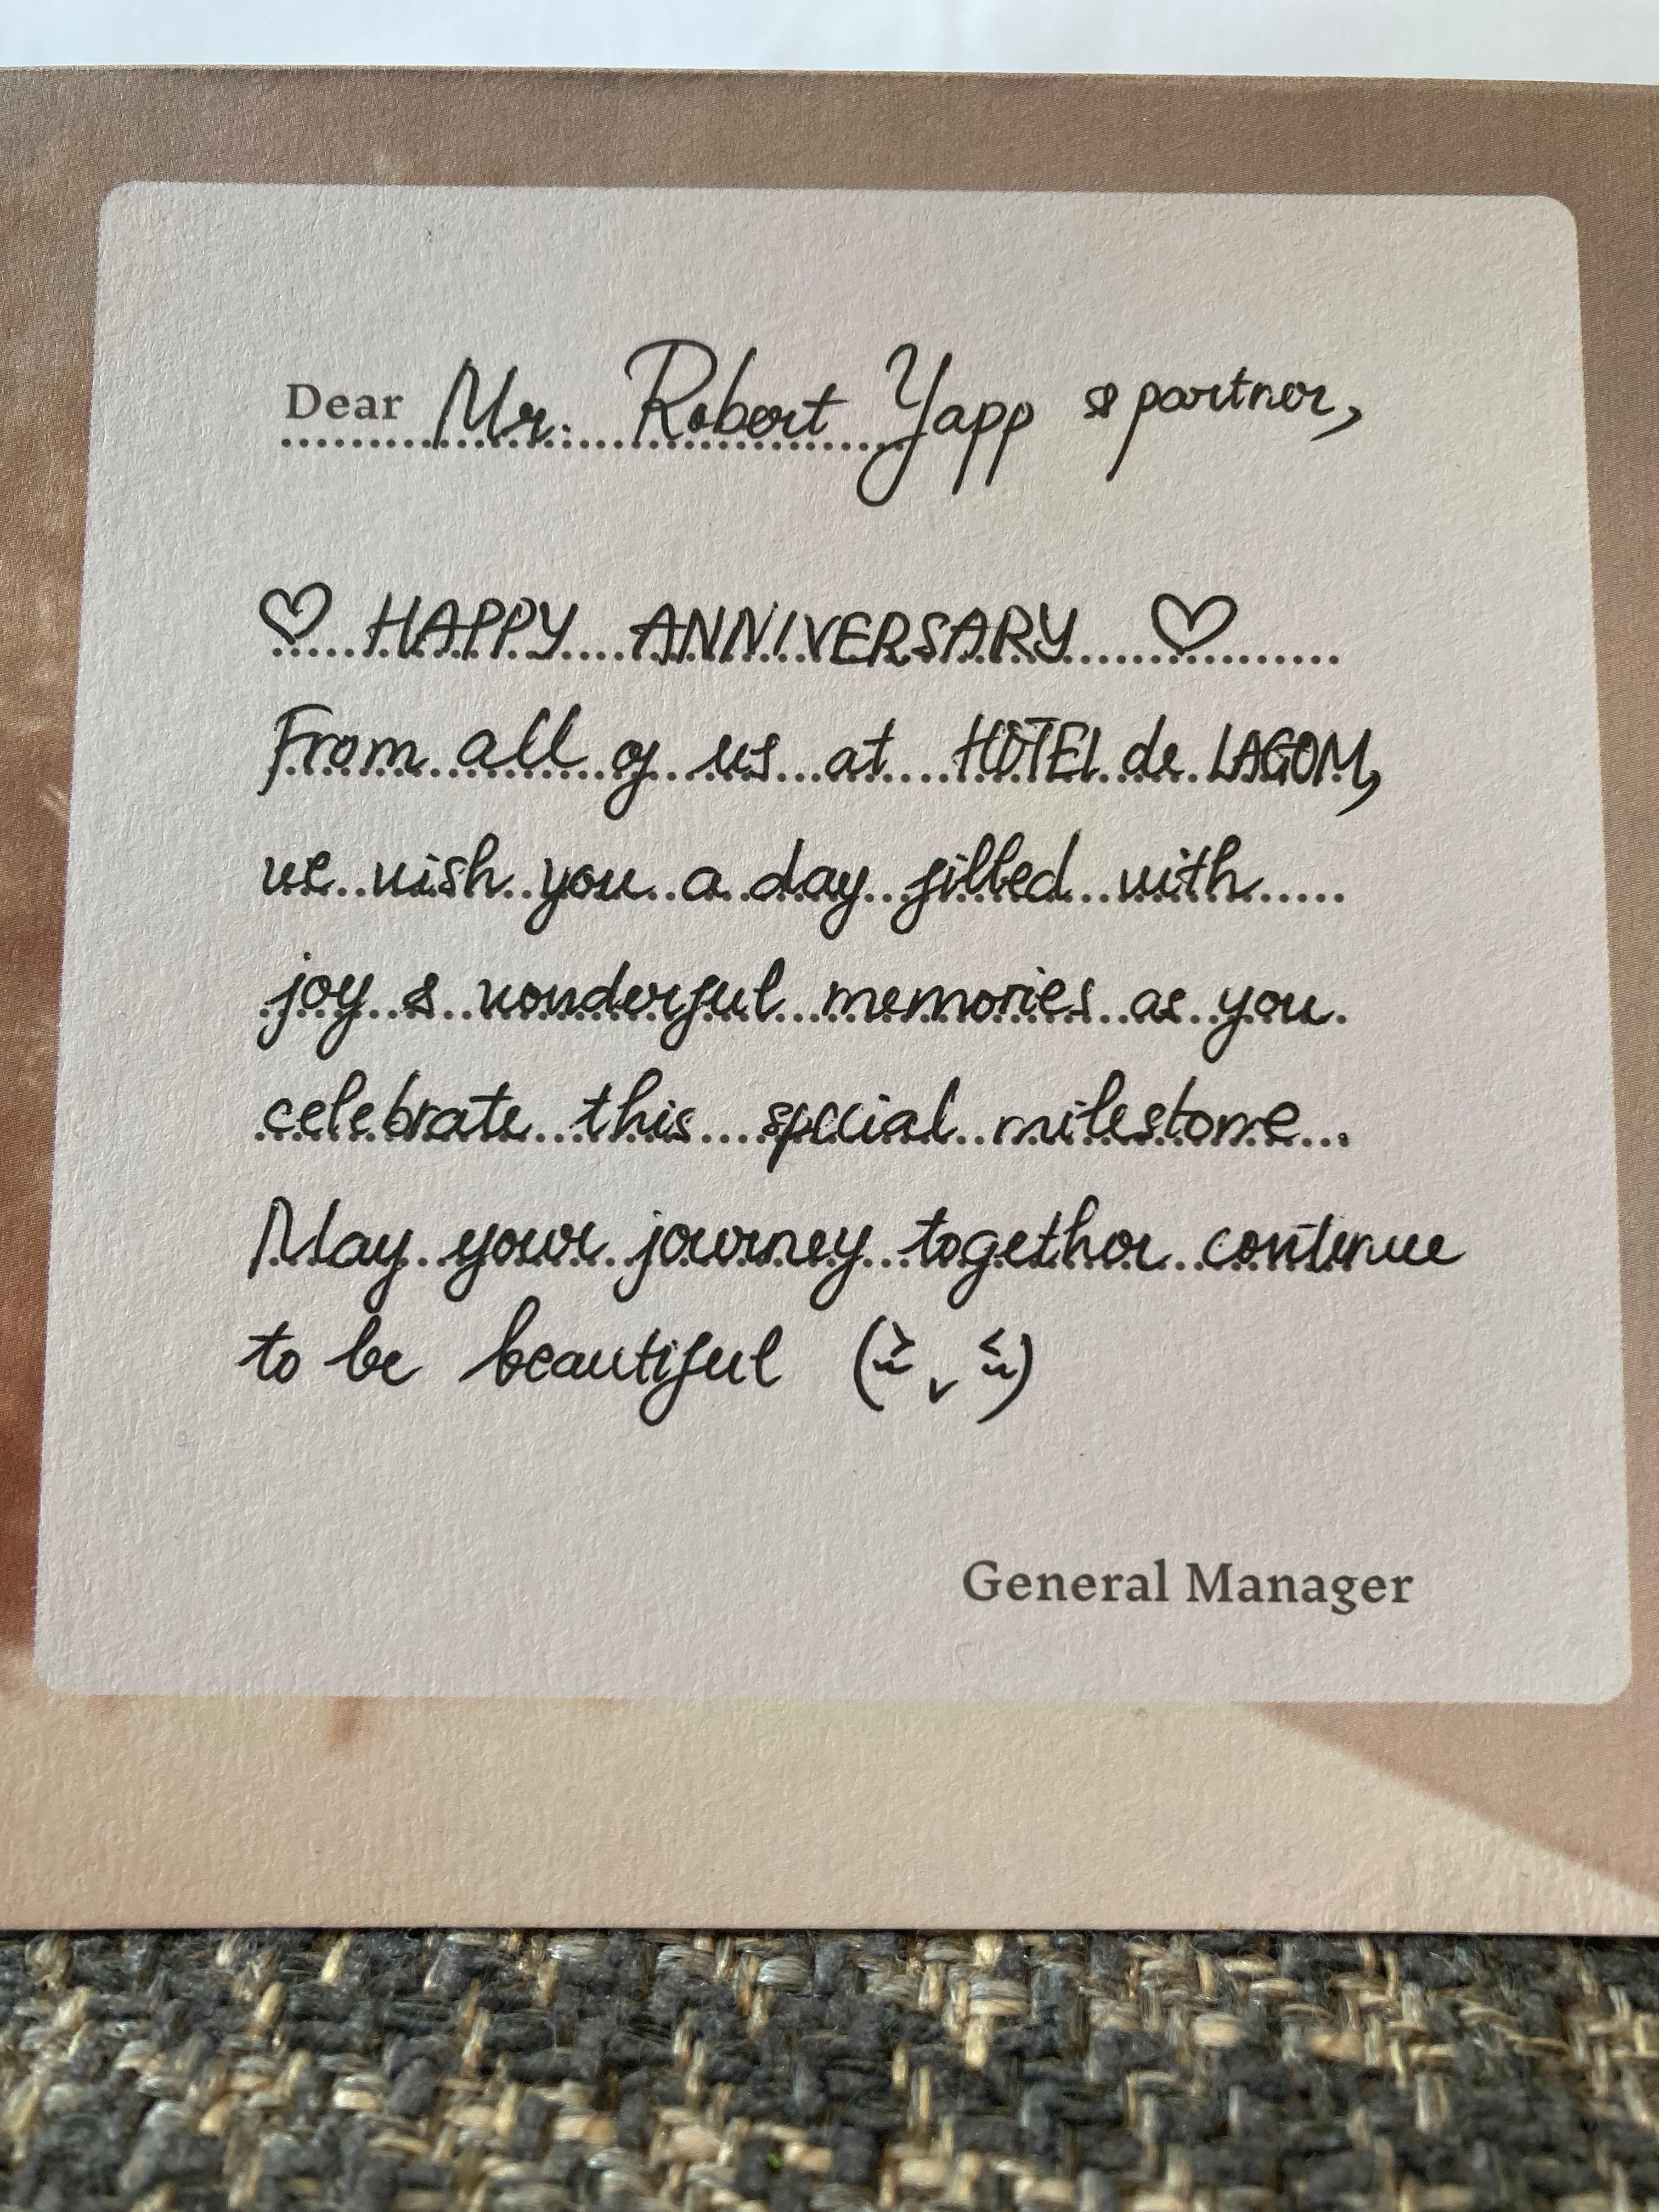 Dear Mr. Robert Yapp & partner,
♡ HAPPY ANNIVERSARY ♡
From all of us at HÔTEL de LAGOM,
we wish you a day filled with
joy & wonderful memories as you
celebrate this special milestone
May your journey together continue
to be beautiful
General Manager